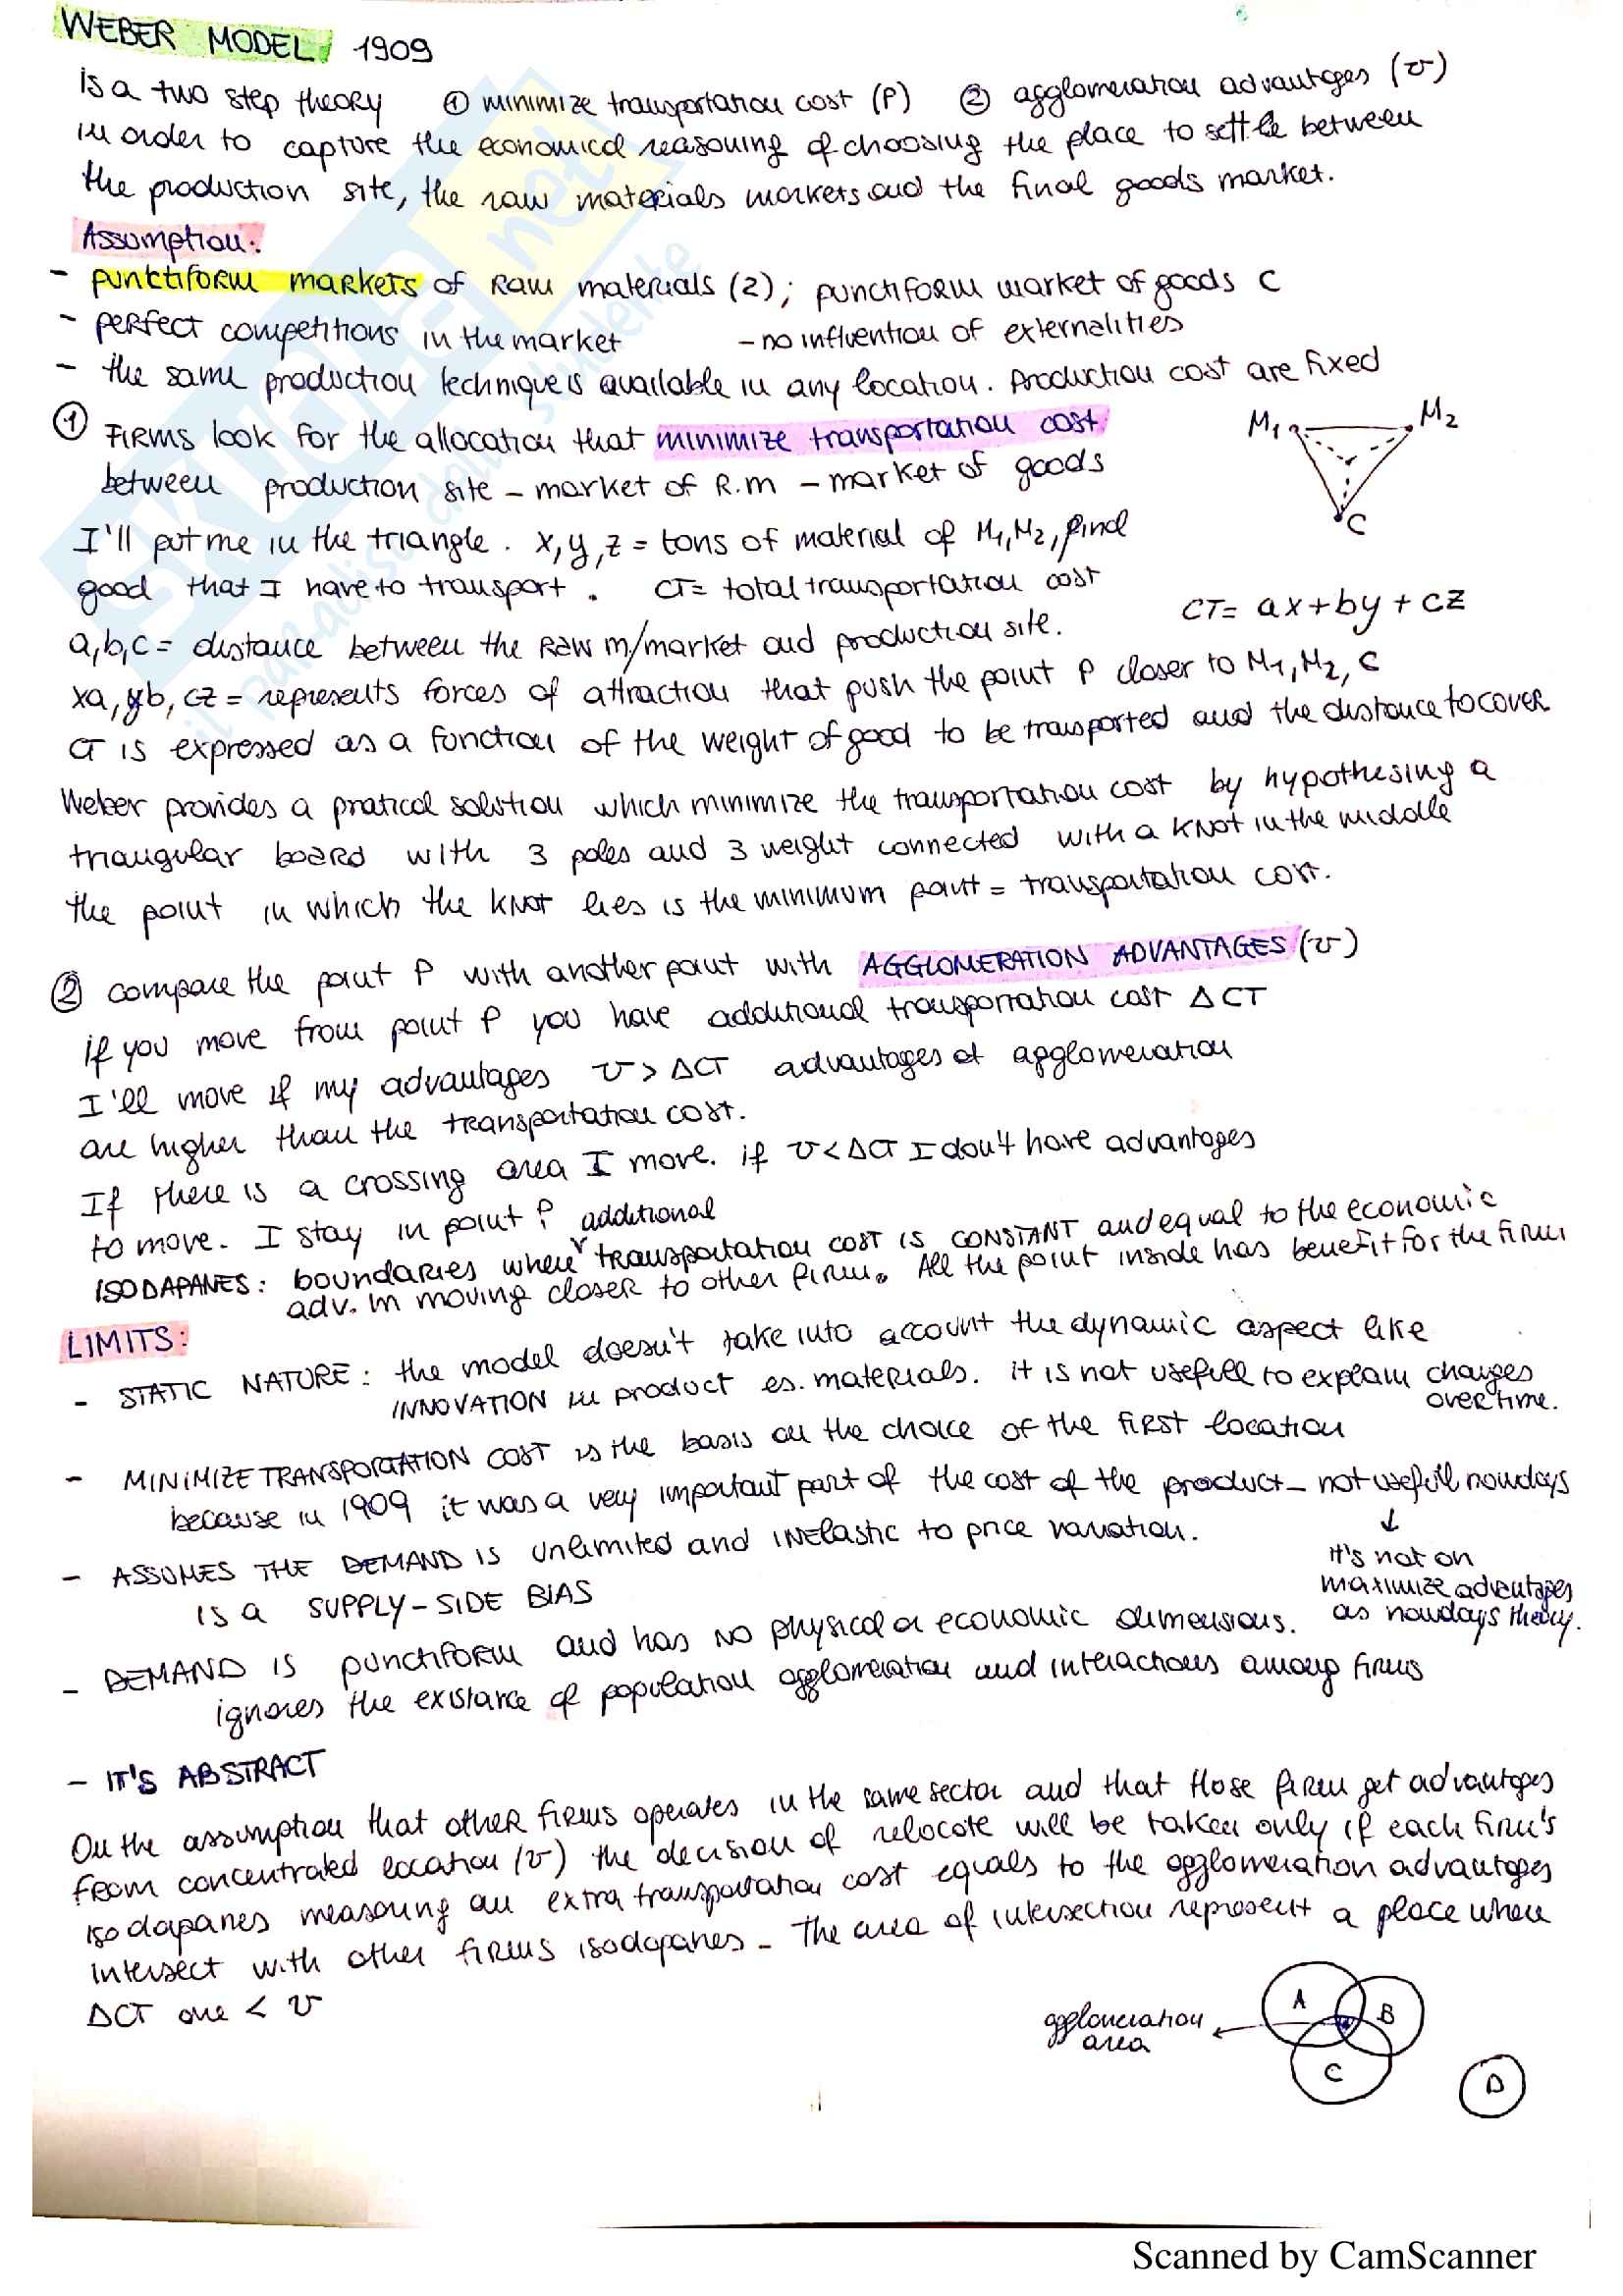 WEBER MODEL 1909
is a two step theory ① minimize transportation cost (P) ② agglomeration advantages (v)
in order to capture the economical reasoning of choosing the place to settle between
the production site, the raw materials markets and the final goods market.
Assumption:
- punctiform markets of raw materials (2); punctiform market of goods C
- perfect competitions in the market - no influention of externalities
- the same production technique is available in any location. Production cost are fixed
① Firms look for the allocation that minimize transportation cost
between production site - market of R.m - market of goods
M1 M2
C
I'll put me in the triangle. x, y, z = tons of material of M1, M2, final
good that I have to transport. CT = total transportation cost
CT = ax + by + cz
a, b, c = distance between the raw m/market and production site.
xa, yb, cz = represents forces of attraction that push the point P closer to M1, M2, C
CT is expressed as a function of the weight of good to be transported and the distance to cover
Weber provides a pratical solution which minimize the transportation cost by hypothesing a
triangular board with 3 poles and 3 weight connected with a knot in the middle
the point in which the knot lies is the minimum point = transportation cost.
② compare the point P with another point with AGGLOMERATION ADVANTAGES (v)
if you move from point P you have additional transportation cost ΔCT
I'll move if my advantages v > ΔCT advantages of agglomeration
are higher than the transportation cost.
If there is a crossing area I move. if v < ΔCT I don't have advantages
to move. I stay in point P
ISODAPANES: boundaries where additional transportation cost is CONSTANT and equal to the economic
adv. in moving closer to other firm. All the point inside has benefit for the firm
LIMITS:
- STATIC NATURE: the model doesn't take into account the dynamic aspect like
INNOVATION in product es. materials. it is not usefull to explain changes
over time.
- MINIMIZE TRANSPORTATION COST is the basis on the choice of the first location
because in 1909 it was a very important part of the cost of the product - not usefull nowdays
↓
it's not on
maximize advantages
as nowdays theory.
- ASSUMES THE DEMAND IS unlimited and INElastic to price variation.
is a SUPPLY-SIDE BIAS
- DEMAND IS punctiform and has NO physical or economic dimensions.
ignores the existance of population agglomeration and interactions among firms
- IT'S ABSTRACT
On the assumption that other firms operates in the same sector and that those firm get advantages
from concentrated location (v) the decision of relocate will be taken only if each firm's
isodapanes measuring an extra transportation cost equals to the agglomeration advantages
intersect with other firms isodapanes - The area of intersection represent a place where
ΔCT are < v
agglomeration
area
A B
C
D
Scanned by CamScanner
skuola.net
il paradiso dello studente